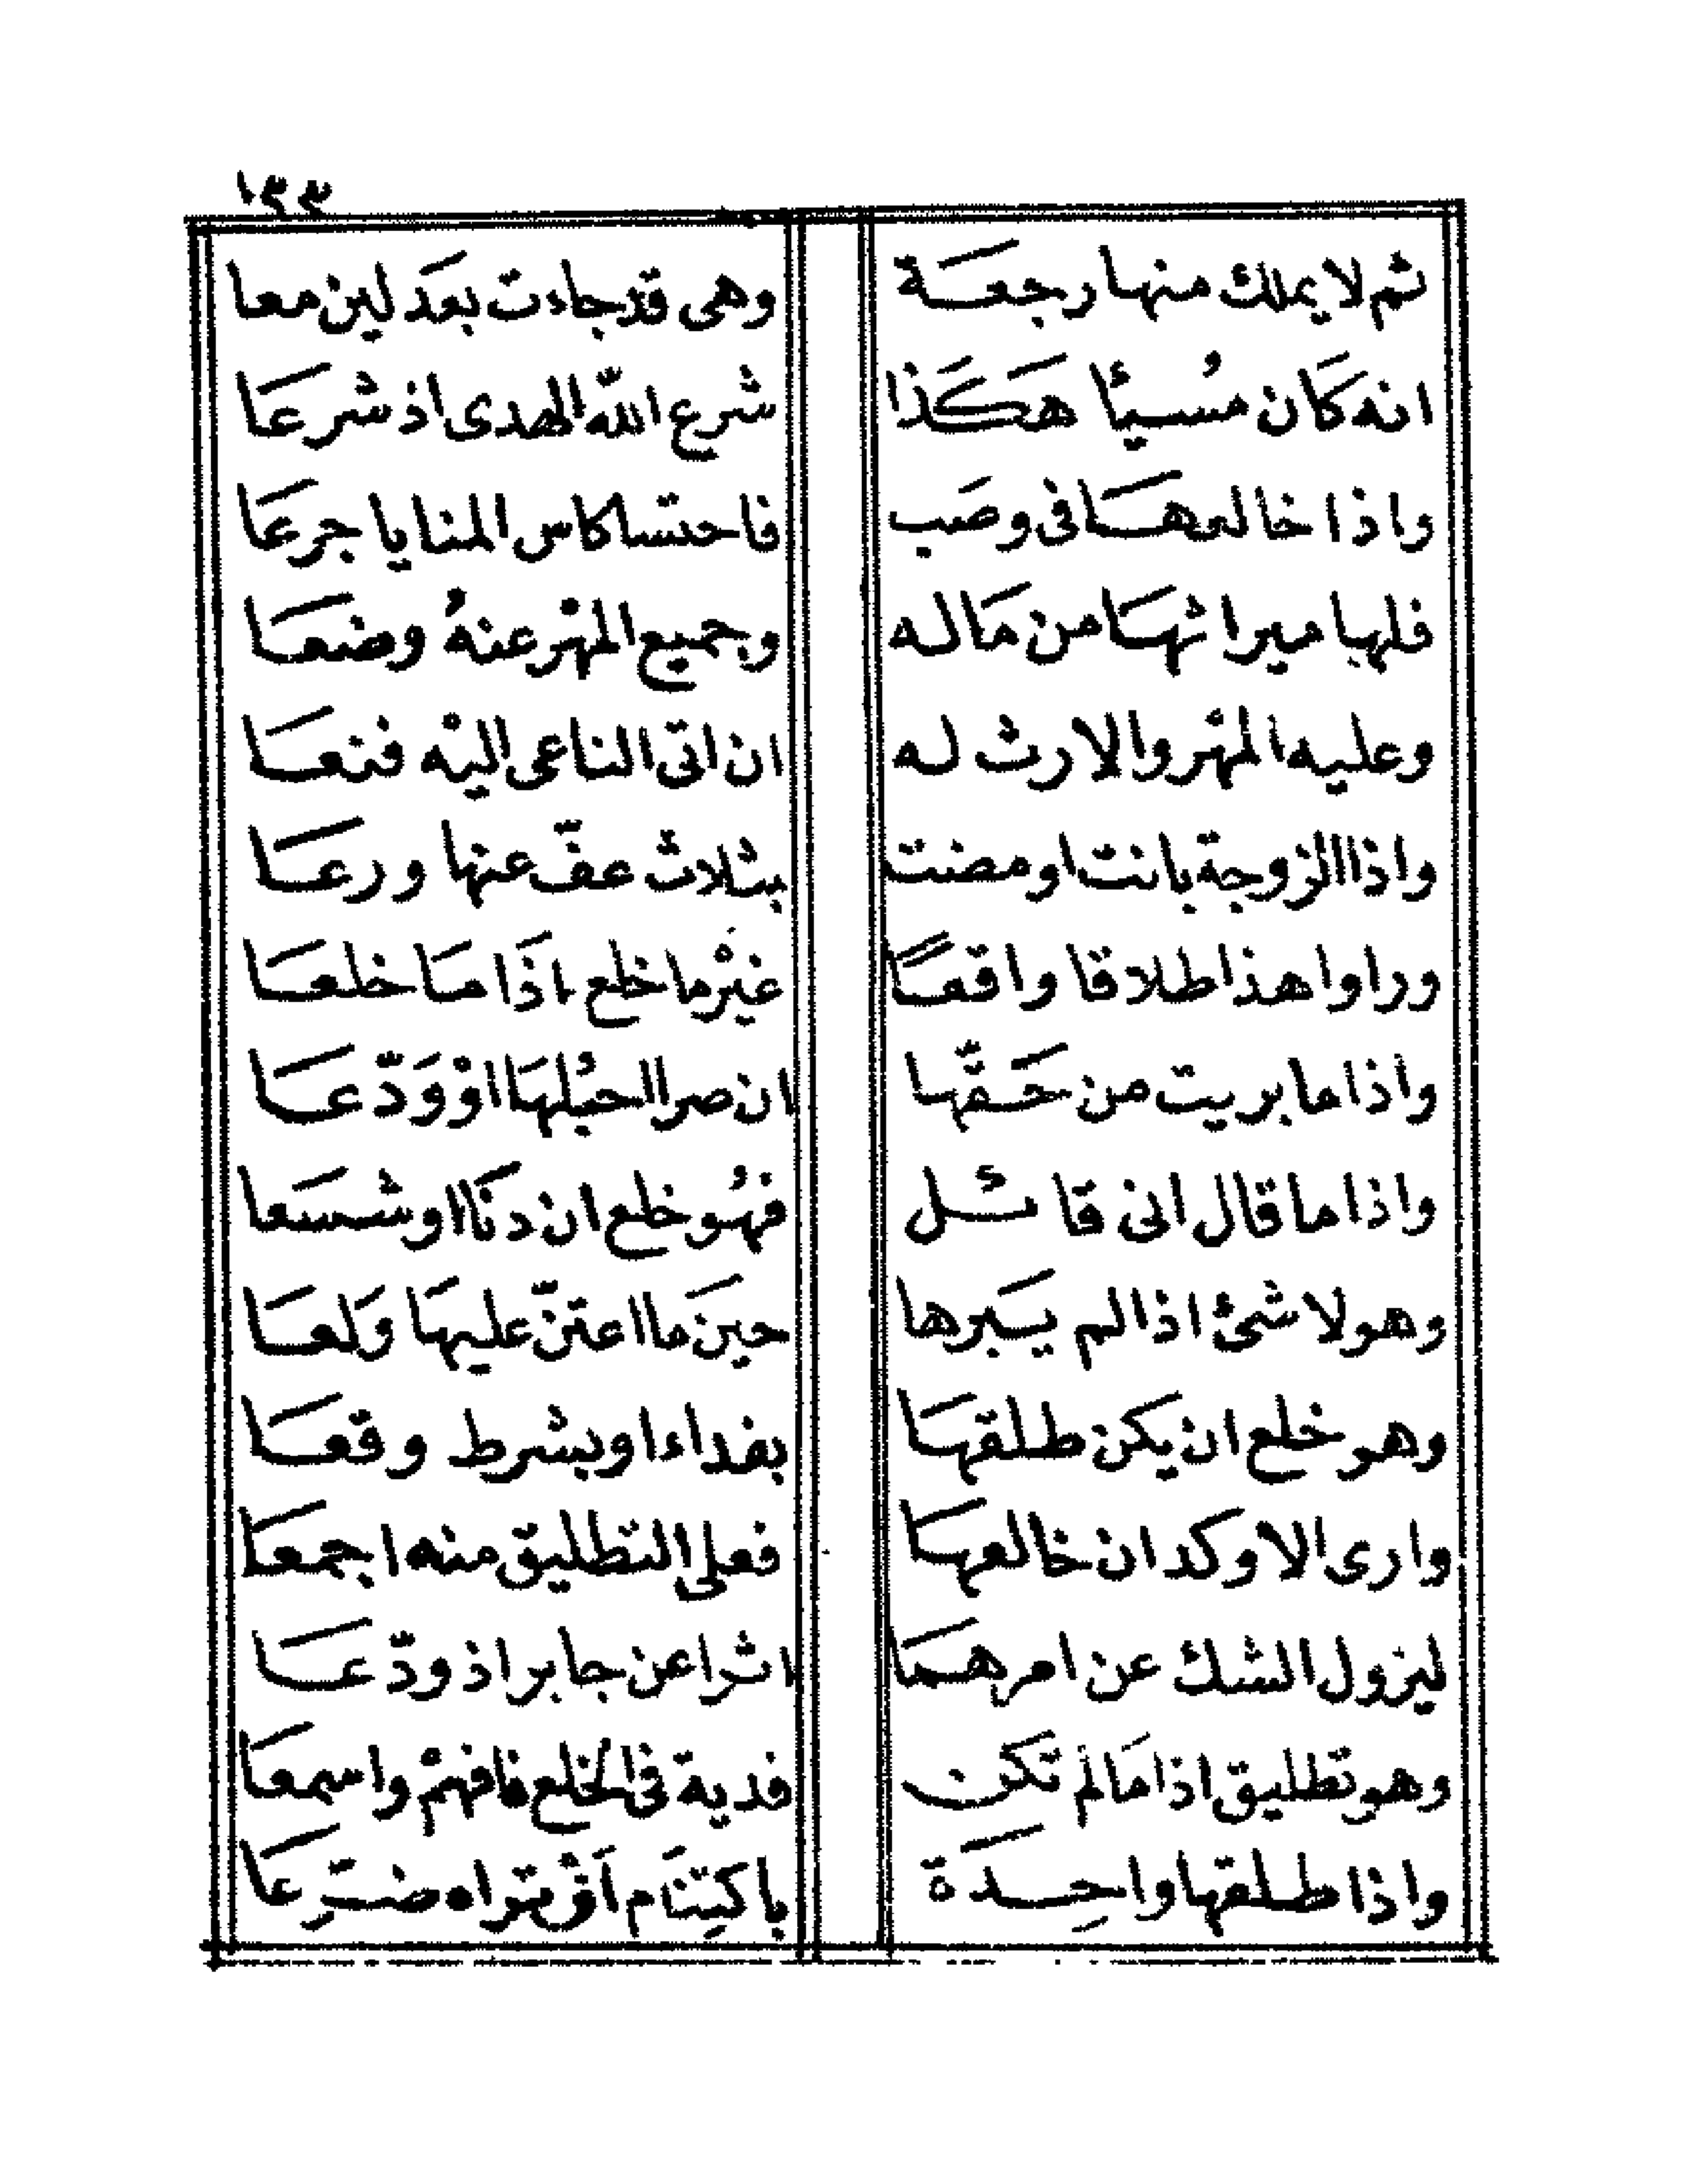 ١٣٣
ثم لا يملك منها رجعَة وهى قد جاءت بعَد لين معا
انه كَان مُسيئا هَكَذا شرع اللّه الهدى اذ شرعَا
واذا خالعهَا فى وصَب فاحتسا كاس المنايا جرعَا
فلها ميراثهَا من مَاله وجميع المهْر عنهُ وضعَا
وعليه المهْر والارث له ان اتى الناعى اليْه فنعَا
واذا الزوجة بانت او مضت بثلاث عفّ عنها ورعَا
وراوا هذا طلاقا واقعًا غيْر ما خلع اذَا مَا خلعَا
واذا ما بريت من حَقّها ان صرا احبْلهَا اوْ وَدّعَا
واذا ما قال انى قائل فهُو خلع ان دنَا او شسَعا
وهو لا شئ اذا لم يَبرها حينَ ما اعتنّ عليهَا وَلعَا
وهو خلع ان يكن طلقهَا بفداء او بشرط وقعَا
وارى الاوكد ان خالعهَا فعلى التطليق منه اجمعَا
ليزول الشك عن امرهمَا اثرا عن جابر اذ ودّعَا
وهو تطليق اذا مَا لم تكن فدية فى الخلع فافهمْ واسمعَا
واذا طلقها واحِدَة باكتِتَام